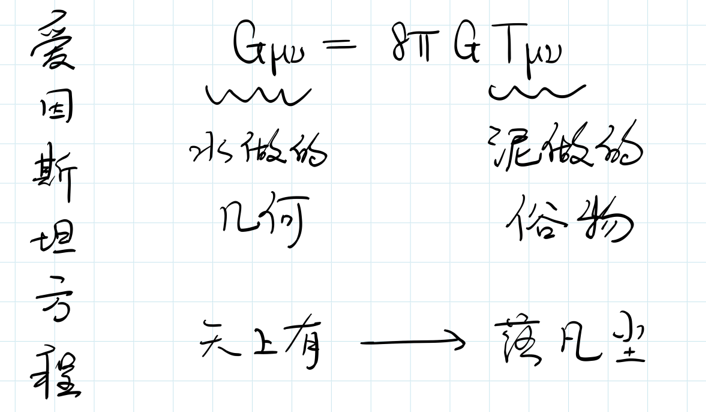 爱因斯坦方程
Gμν = 8π G Tμν
水做的 泥做的
几何 俗物
天上有 → 落凡尘